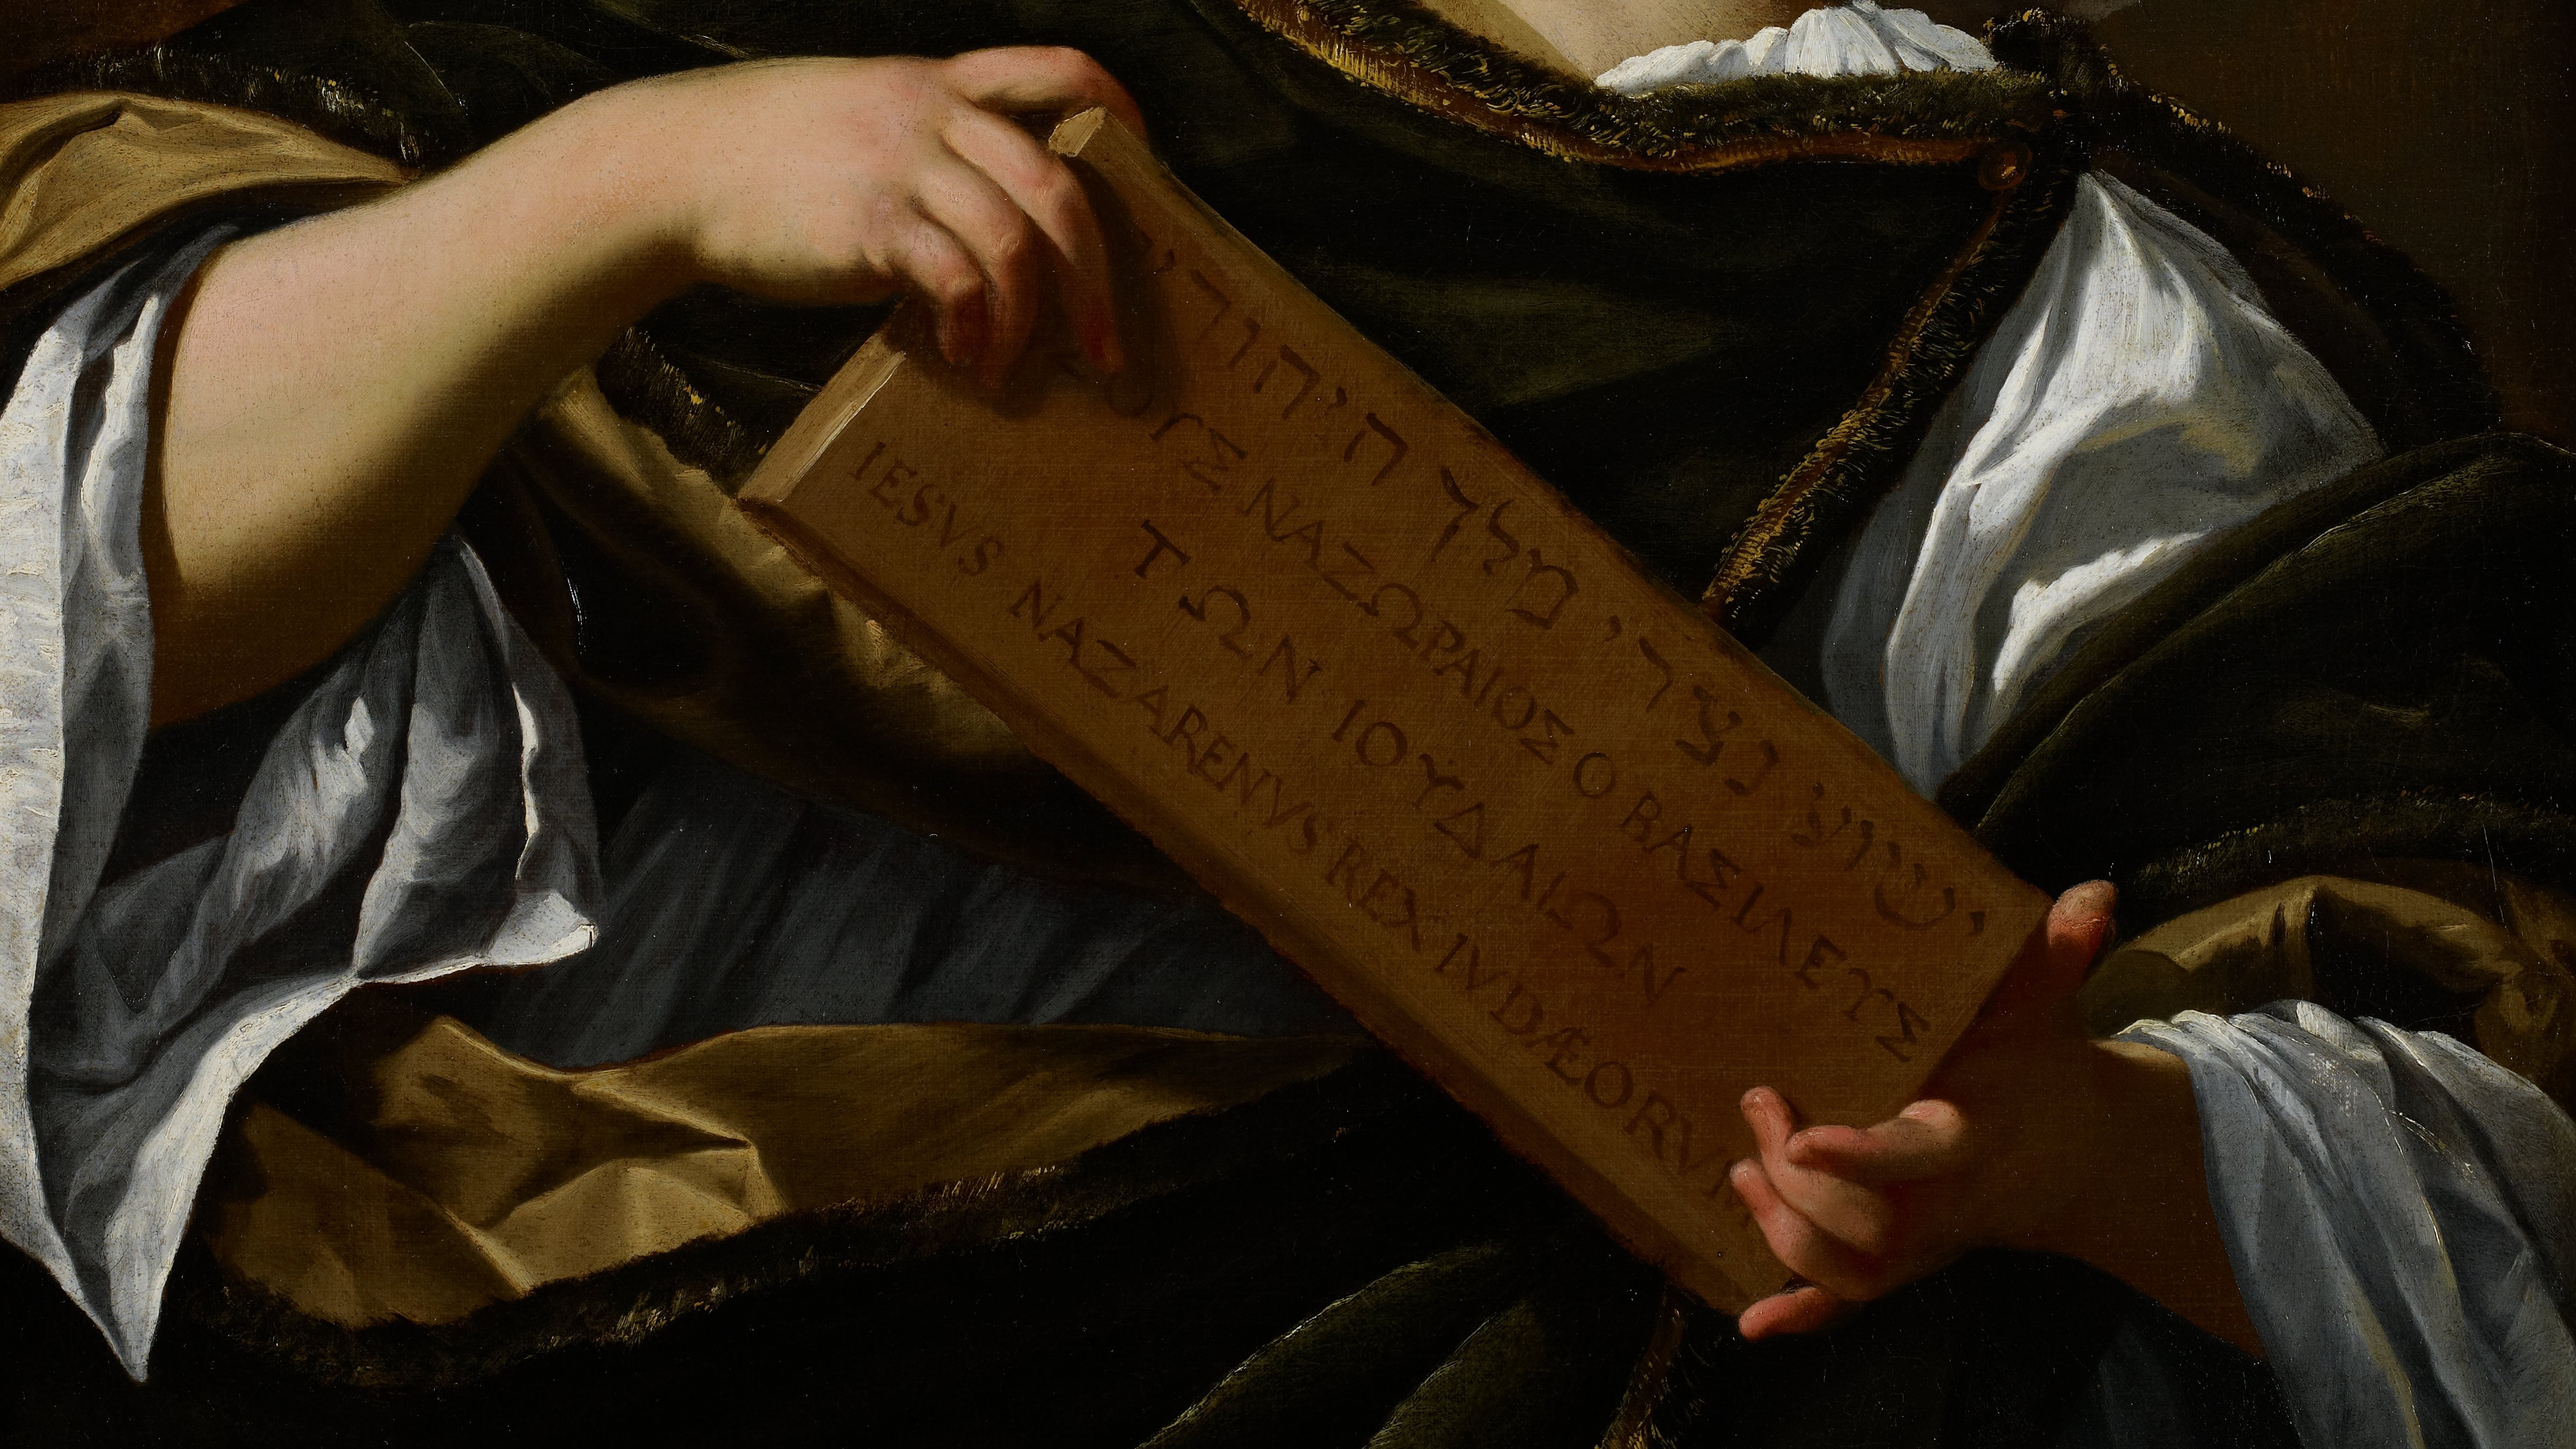 ישוע נצרי מלך היהודי
ΟΥΣ ΝΑΖΩΡΑΙΟΣ Ο ΒΑΣΙΛΕΥΣ
ΤΩΝ ΙΟΥΔΑΙΩΝ
IESVS NAZARENVS REX IVDÆORVM